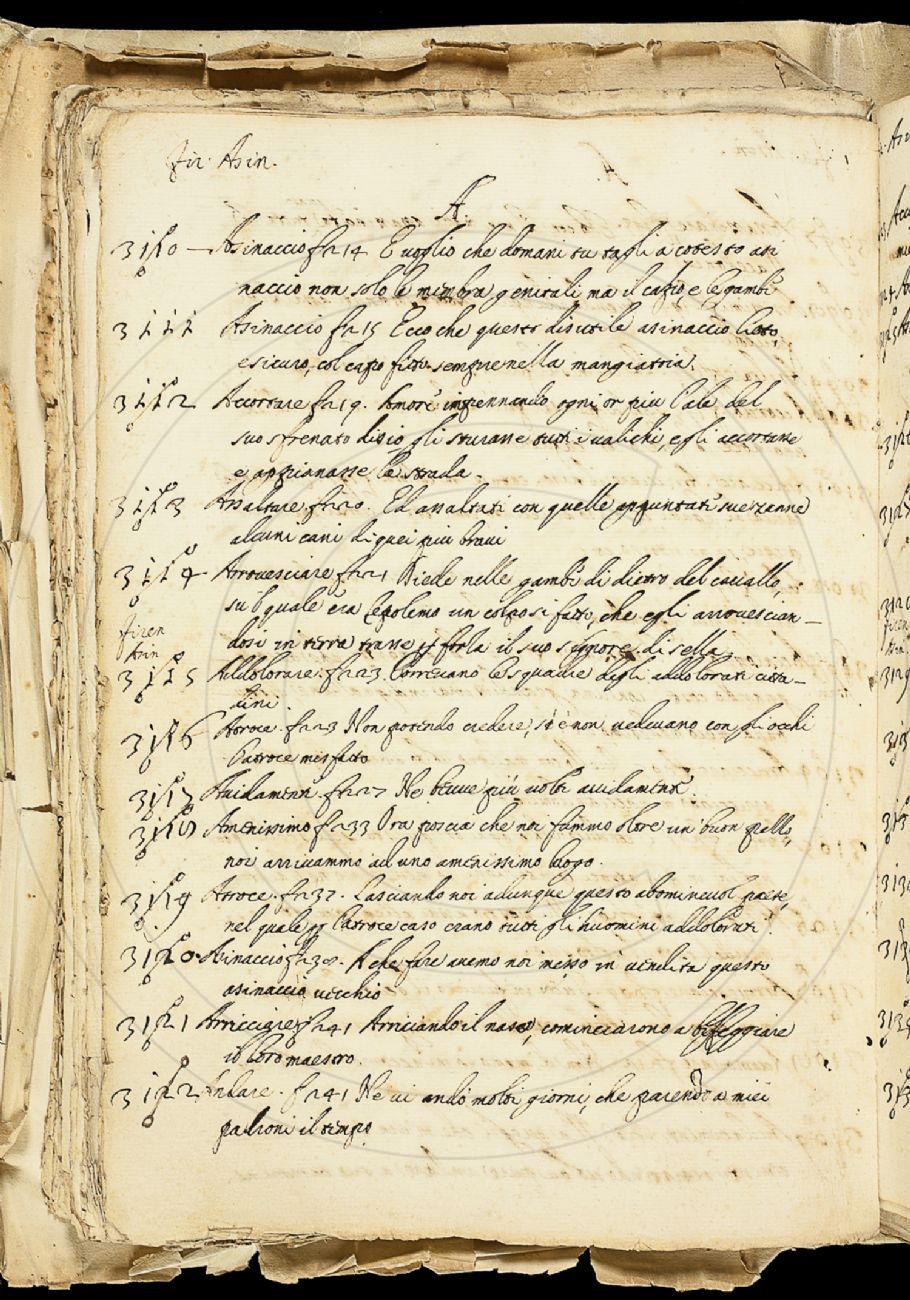 Fir. Asin.
A
3110 Asinaccio fr 214 E voglio che domani tu tagli a cotesto asi
naccio non solo le membra genitali ma il capo, e le gambe
3111 Asinaccio fr 215 Ecco che questo disutile asinaccio lieto,
e sicuro, col capo fitto sempre nella mangiatoia.
3112 Accortare fr 219. Amore impennando ogni or piu l'ale del
suo sfrenato disio, gli sturasse tutti i valichi, e gli accortasse
e appianasse la strada
3113 Assaltare fr 220. Ed assaltati con quelle appuntate verzanne
alcuni cani di quei piu bravi
3114 Arrovesciare fr 221 Diede nelle gambe di dietro del cavallo,
su 'l quale era Lepolemo un colpo si fatto, che egli arrovescian_
Firen
Asin
dosi in terra trasse per forza il suo signore di sella
3115 Addolorare. fr 223 Correvano le squadre degli addolorati citta_
dini
3116 Atroce. fr 223 Non potendo credere, se e' non vedevano con gli occhi
l'atroce misfatto
3117 Avidamente fr 227 Ne bevve più volte avidamente.
3118 Amenissimo fr 233 Ora poscia che noi fummo élore un buon pezzo,
noi arrivammo ad uno amenissimo luogo.
3119 Atroce. fr 237. Lasciando noi adunque questo abominevol paese,
nel quale per l'atroce caso erano tutti gli huomini addolorati.
3120 Asinaccio fr 238. A che fare avemo noi messo in vendita questo
asinaccio vecchio
3121 Arricciare fr 241 Arricciando il naso, cominciarono a beffeggiare
il loro maestro.
3122 Andare. fr 241 Ne vi andò molti giorni, che parendo a miei
padroni il tempo